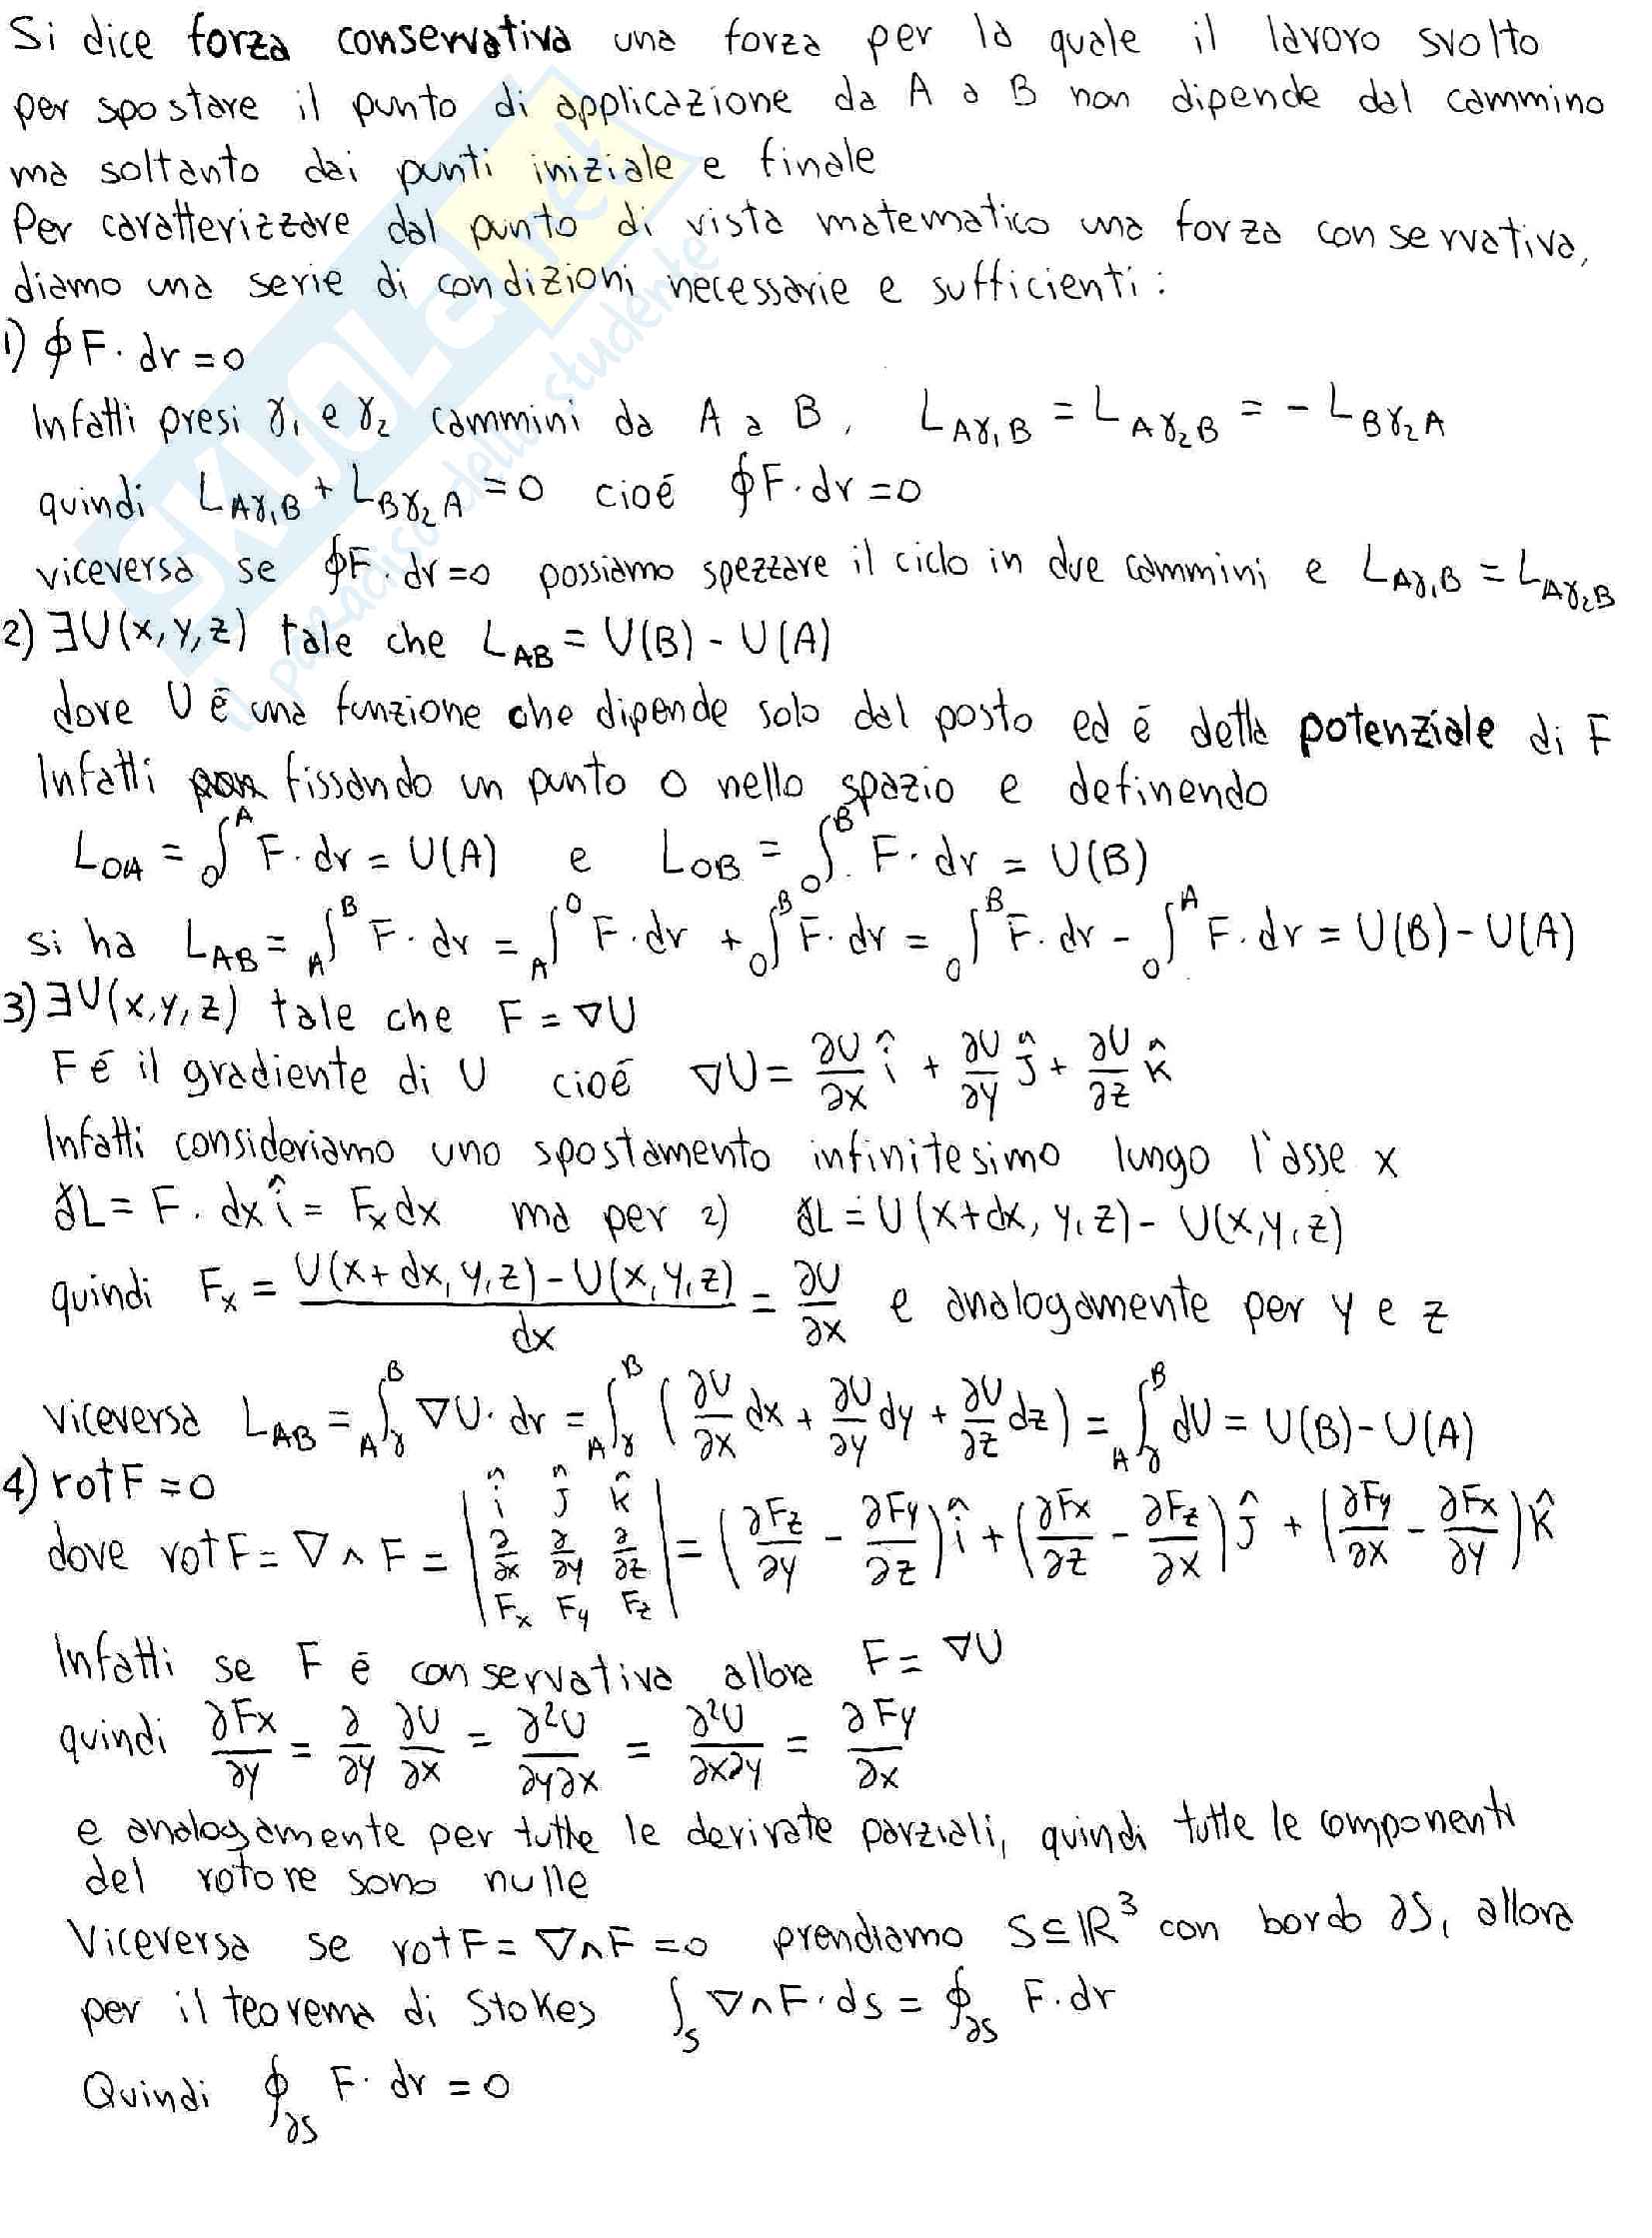 Si dice forza conservativa una forza per la quale il lavoro svolto
per spostare il punto di applicazione da A a B non dipende dal cammino
ma soltanto dai punti iniziale e finale
Per caratterizzare dal punto di vista matematico una forza conservativa,
diamo una serie di condizioni necessarie e sufficienti:
1) ∮F·dr=0
Infatti presi γ₁ e γ₂ cammini da A a B, L_Aγ₁B = L_Aγ₂B = -L_Bγ₂A
quindi L_Aγ₁B + L_Bγ₂A = 0 cioé ∮F·dr=0
viceversa se ∮F·dr=0 possiamo spezzare il ciclo in due cammini e L_Aγ₁B = L_Aγ₂B
2) ∃U(x,y,z) tale che L_AB = U(B) - U(A)
dove U é una funzione che dipende solo dal posto ed é detta potenziale di F
Infatti fissando un punto O nello spazio e definendo
L_OA = ∫_O^A F·dr = U(A) e L_OB = ∫_O^B F·dr = U(B)
si ha L_AB = ∫_A^B F·dr = ∫_A^O F·dr + ∫_O^B F·dr = ∫_O^B F·dr - ∫_O^A F·dr = U(B) - U(A)
3) ∃U(x,y,z) tale che F = ∇U
F é il gradiente di U cioé ∇U = ∂U/∂x î + ∂U/∂y ĵ + ∂U/∂z k̂
Infatti consideriamo uno spostamento infinitesimo lungo l'asse x
δL = F·dx î = Fx dx ma per 2) δL = U(x+dx, y, z) - U(x,y,z)
quindi Fx = U(x+dx, y, z) - U(x, y, z) / dx = ∂U/∂x e analogamente per y e z
viceversa L_AB = ∫_Aγ^B ∇U·dr = ∫_Aγ^B (∂U/∂x dx + ∂U/∂y dy + ∂U/∂z dz) = ∫_Aγ^B dU = U(B) - U(A)
4) rotF = 0
dove rotF = ∇∧F = | î ĵ k̂ ; ∂/∂x ∂/∂y ∂/∂z ; Fx Fy Fz | = (∂Fz/∂y - ∂Fy/∂z) î + (∂Fx/∂z - ∂Fz/∂x) ĵ + (∂Fy/∂x - ∂Fx/∂y) k̂
Infatti se F é conservativa allora F = ∇U
quindi ∂Fx/∂y = ∂/∂y ∂U/∂x = ∂²U/∂y∂x = ∂²U/∂x∂y = ∂Fy/∂x
e analogamente per tutte le derivate parziali, quindi tutte le componenti
del rotore sono nulle
Viceversa se rotF = ∇∧F = 0 prendiamo S⊆ℝ³ con bordo ∂S, allora
per il teorema di Stokes ∫_S ∇∧F·ds = ∮_∂S F·dr
Quindi ∮_∂S F·dr = 0
SKUOLA.net
il paradiso dello studente